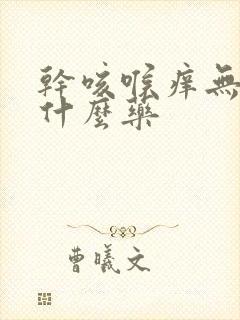 幹咳喉痒無
什麼藥
曹曦文